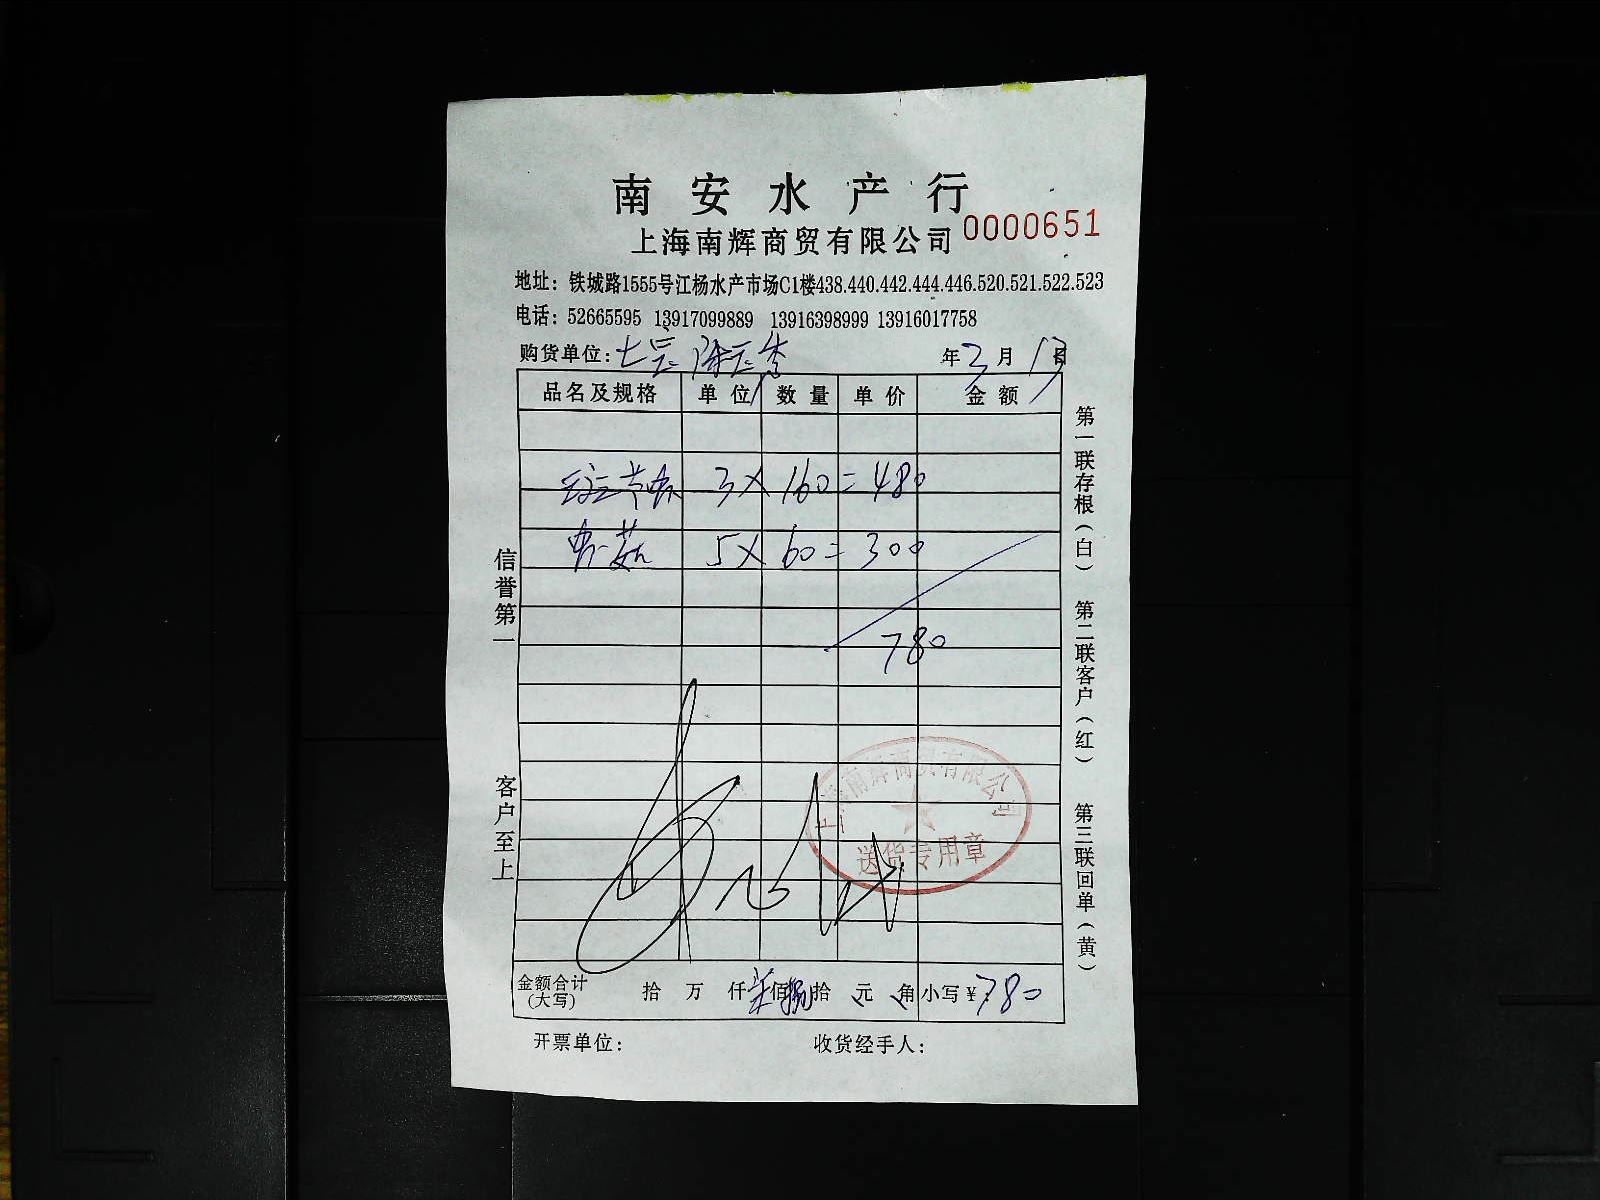 南安水产行
上海南辉商贸有限公司 0000651
地址：铁城路1555号江杨水产市场C1楼438.440.442.444.446.520.521.522.523
电话：52665595 13917099889 13916398999 13916017758
购货单位：
年3月13日
品名及规格 单位 数量 单价 金额
3×160=480
5×60=300
780
信誉第一
客户至上
第一联存根（白） 第二联客户（红） 第三联回单（黄）
上海南辉商贸有限公司
送货专用章
金额合计（大写） 拾 万 仟 柒 佰 捌 拾 元 角 小写￥：780
开票单位： 收货经手人：